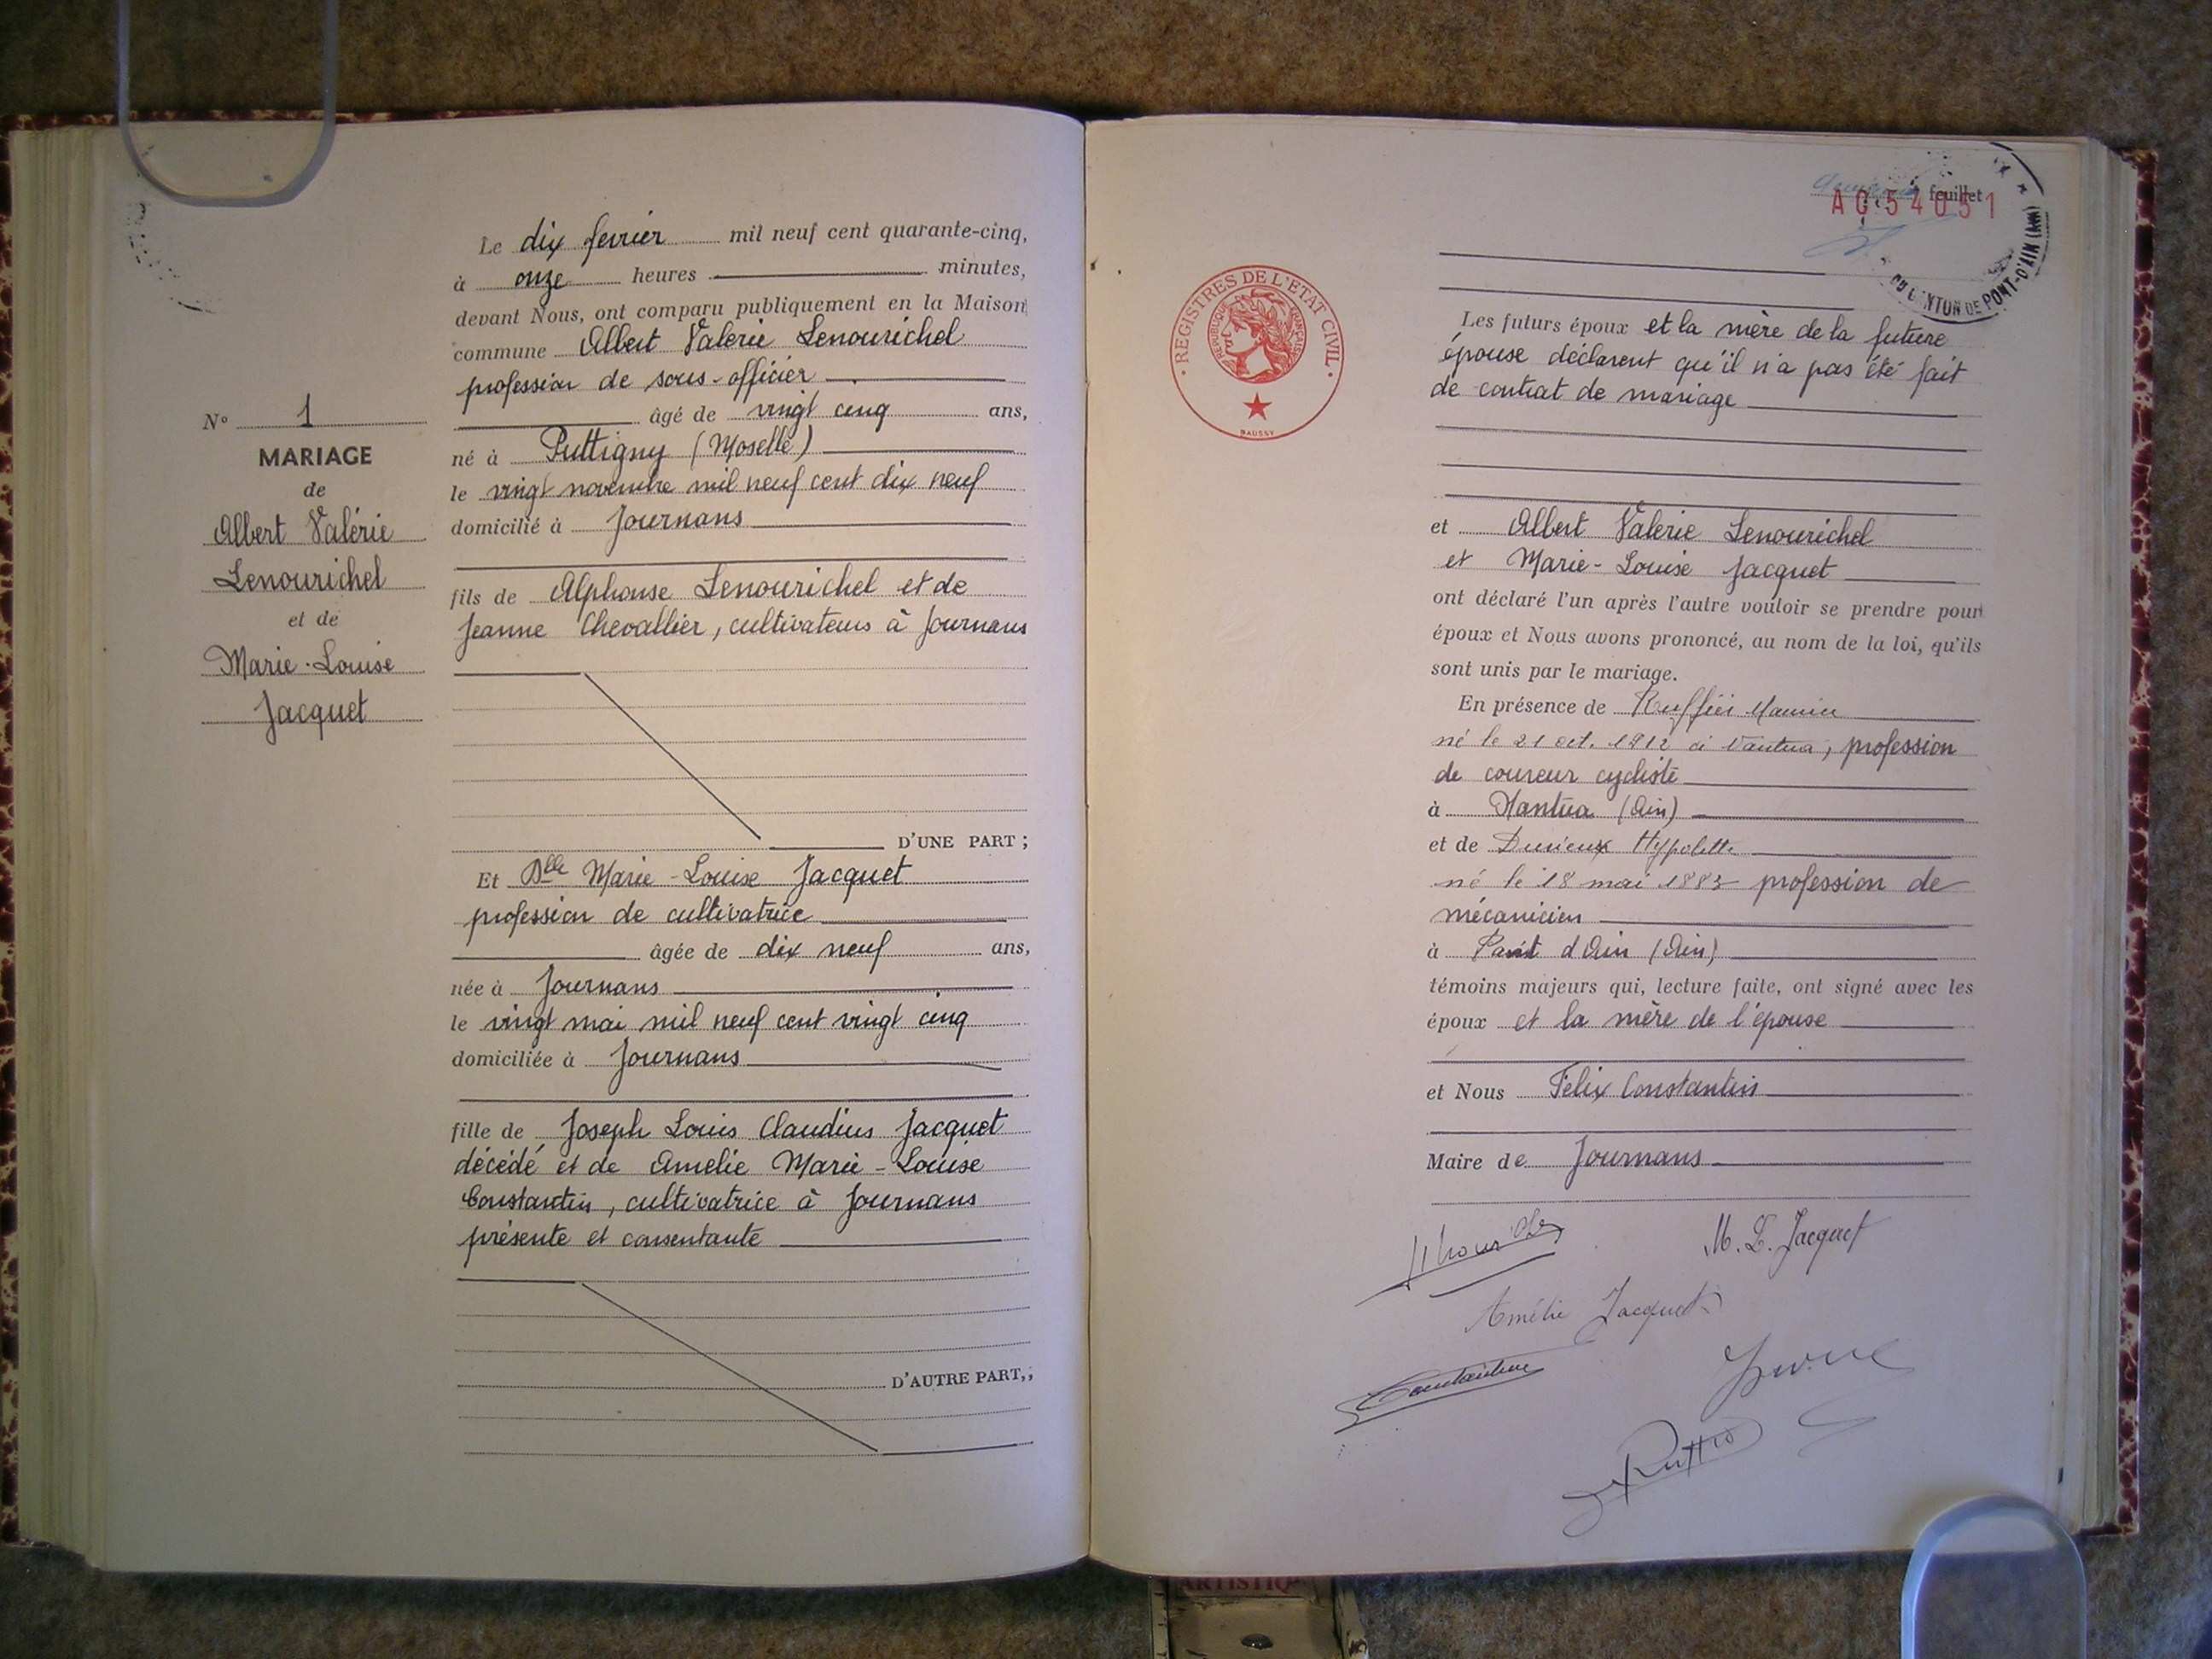 N° 1
MARIAGE
de
Albert Valérie
Lenourichel
et de
Marie-Louise
Jacquet
Le dix fevrier mil neuf cent quarante-cinq,
à onze heures minutes,
devant Nous, ont comparu publiquement en la Maison
commune Albert Valerie Lenourichel
profession de sous-officier
âgé de vingt cinq ans,
né à Puttigny (Moselle)
le vingt novembre mil neuf cent dix neuf
domicilié à Journans
fils de Alphonse Lenourichel et de
Jeanne Chevallier, cultivateurs à Journans
D'UNE PART ;
Et Dlle Marie-Louise Jacquet
profession de cultivatrice
âgée de dix neuf ans,
née à Journans
le vingt mai mil neuf cent vingt cinq
domiciliée à Journans
fille de Joseph Louis Claudius Jacquet
décédé et de Amelie Marie-Louise
Constantin, cultivatrice à Journans
présente et consentante
D'AUTRE PART,;
feuillet
AC 54051
CANTON DE PONT-D'AIN (AIN)
REGISTRES DE L'ETAT CIVIL
REPUBLIQUE FRANÇAISE
BAUSSY
Les futurs époux et la mère de la future
épouse déclarent qu'il n'a pas été fait
de contrat de mariage
et Albert Valerie Lenourichel
et Marie-Louise Jacquet
ont déclaré l'un après l'autre vouloir se prendre pour
époux et Nous avons prononcé, au nom de la loi, qu'ils
sont unis par le mariage.
En présence de Ruffier Maurice
né le 21 oct. 1912 à Nantua, profession
de coureur cycliste
à Nantua (Ain)
et de Durieux Hyppolitte
né le 18 mai 1883 profession de
mécanicien
à Pont d'Ain (Ain)
témoins majeurs qui, lecture faite, ont signé avec les
époux et la mère de l'épouse
et Nous Félix Constantin
Maire de Journans
M. L. Jacquet
Amélie Jacquet
Constantin